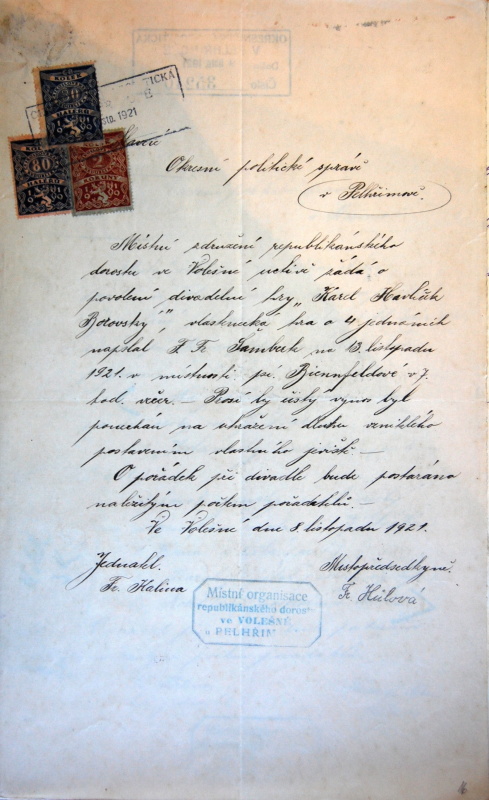 Okresní politické správě
v Pelhřimově.
Místní združení republikánského
dorostu ve Volešné uctivě žádá o
povolení divadelní hry „Karel Havlíček
Borovský", vlastenecká hra o 4 jednáních
napsal F. Fr. Šamberk na 13. listopadu
1921. v místnosti pí. Biennfeldové v 7.
hod. večer. – Prosí by čistý výnos byl
ponechán na uhražení dluhu vzniklého
postavením vlastního jeviště –
O pořádek při divadle bude postaráno
náležitým počtem pořadatelů. –
Ve Volešné dne 8. listopadu 1921.
Jednatel. Místopředsedkyně.
Fr. Kalina Fr. Hůlová
Místní organisace
republikánského dorost
ve VOLEŠNÉ
„PELHŘIM
KOLEK
HALÉŘŮ
80
2
1921